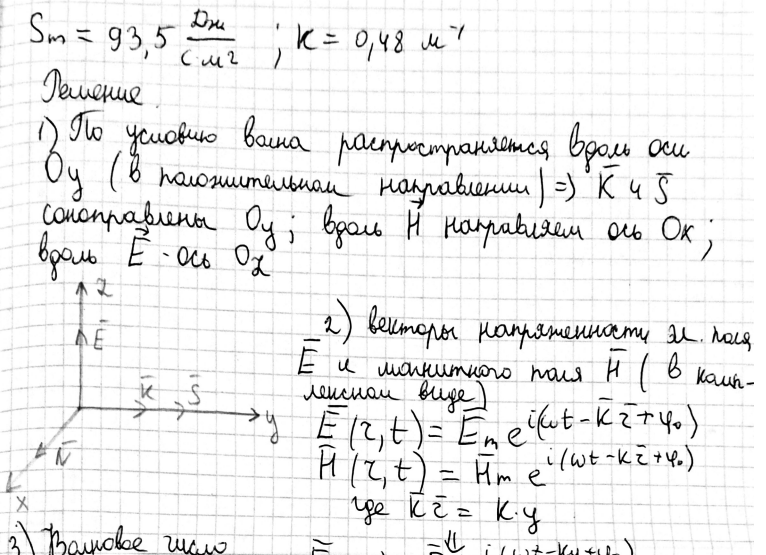 Sm = 93,5 Дж/с·м² ; K = 0,48 м⁻¹
Решение
1) По условию волна распространяется вдоль оси
Oy (в положительном направлении) => K̄ и S̄
сонаправлены Oy; вдоль H⃗ направляем ось Ox;
вдоль E⃗ - ось Oz
z
Ē
K̄ S̄
y
x
2) векторы напряженности эл. поля
Ē и магнитного поля H̄ (в комп-
лексном виде)
Ē(r,t) = Ēm e^i(ωt - K̄r̄ + φ₀)
H̄(r,t) = H̄m e^i(ωt - K̄r̄ + φ₀)
где K̄r̄ = K·y
3) Волновое число